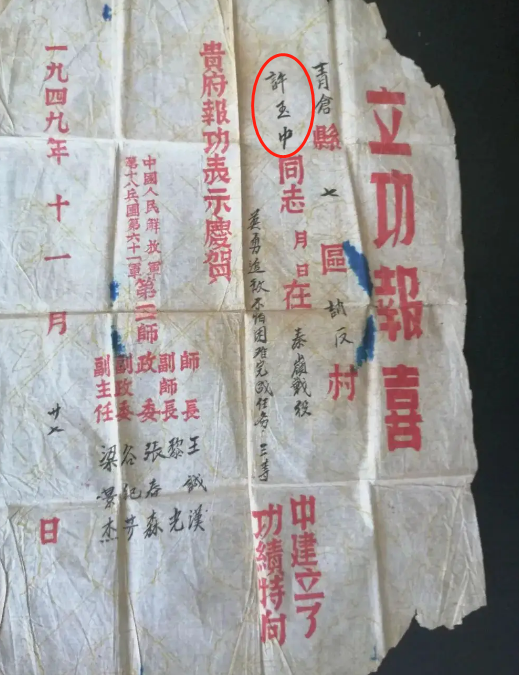 立功報喜
青倉縣七區趙 村
許玉中同志 月 日在秦嶺戰役
英勇追敵不怕困难完成任务 三等
中建立了
功績特向
貴府報功表示慶賀
中國人民解放軍
第十八兵團第六十一軍
第 師
師長 王誠漢
副師長 黎光
政委 張春森
副政委 谷
副主任 梁景杰
一九四九年十一月廿七日